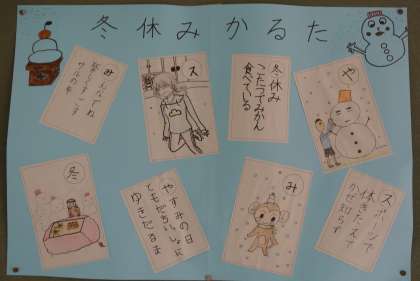 冬休みかるた
みんなでね
楽しくすごそう
サルの年
ス
冬休み
こたつでみかん
食べている
や
冬
やすみの日
ともだちいっしょに
ゆきだるま
み
スポーツで
体きたえて
かぜ知らず